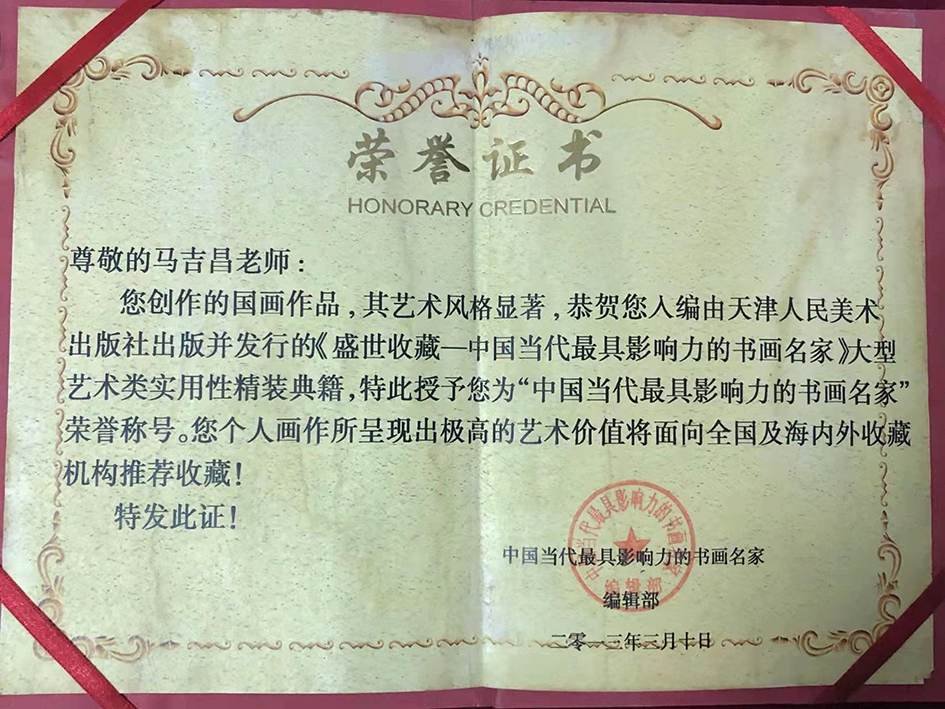 荣誉证书
HONORARY CREDENTIAL
尊敬的马吉昌老师:
您创作的国画作品,其艺术风格显著,恭贺您入编由天津人民美术
出版社出版并发行的《盛世收藏—中国当代最具影响力的书画名家》大型
艺术类实用性精装典籍,特此授予您为“中国当代最具影响力的书画名家”
荣誉称号。您个人画作所呈现出极高的艺术价值将面向全国及海内外收藏
机构推荐收藏!
特发此证!
中国当代最具影响力的书画名家
编辑部
二零一三年三月十日
中国当代最具影响力的书画名家
编辑部